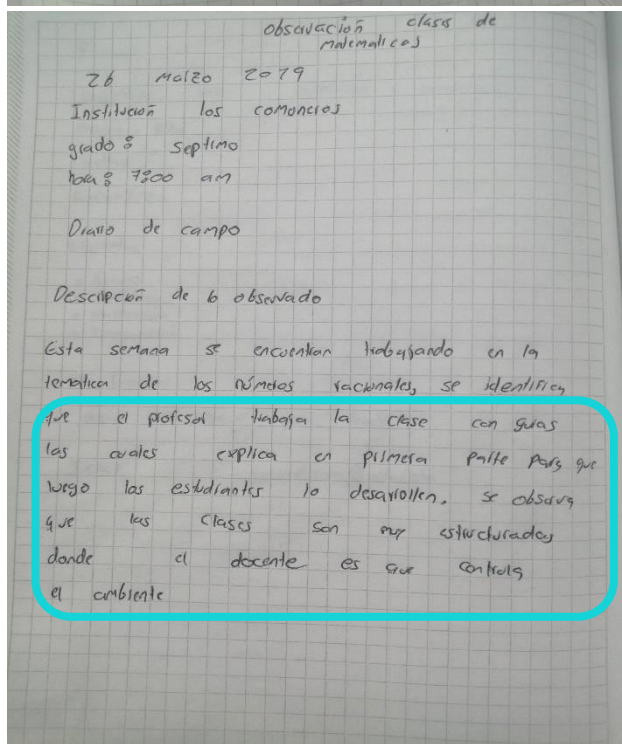 observación clases de
matematicas
26 Marzo 2019
Institución los comoneros
grado: septimo
hora: 7:00 am
Diario de campo
Descripción de lo observado
Esta semana se encuentran trabajando en la
tematica de los números racionales, se identifica
que el profesor trabaja la clase con guias
las cuales explica en primera parte para que
luego los estudiantes lo desarrollen. se observa
que las clases son muy estructuradas
donde el docente es que controla
el ambiente